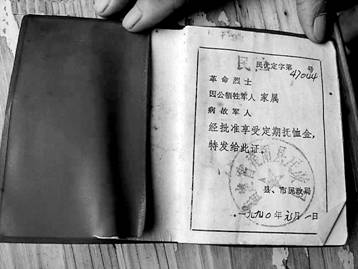 民 民优定字第 47044 号
革命烈士
因公牺牲军人 家属
病故军人
经批准享受定期抚恤金，
特发给此证。
县、市民政局
一九九〇年元月一日